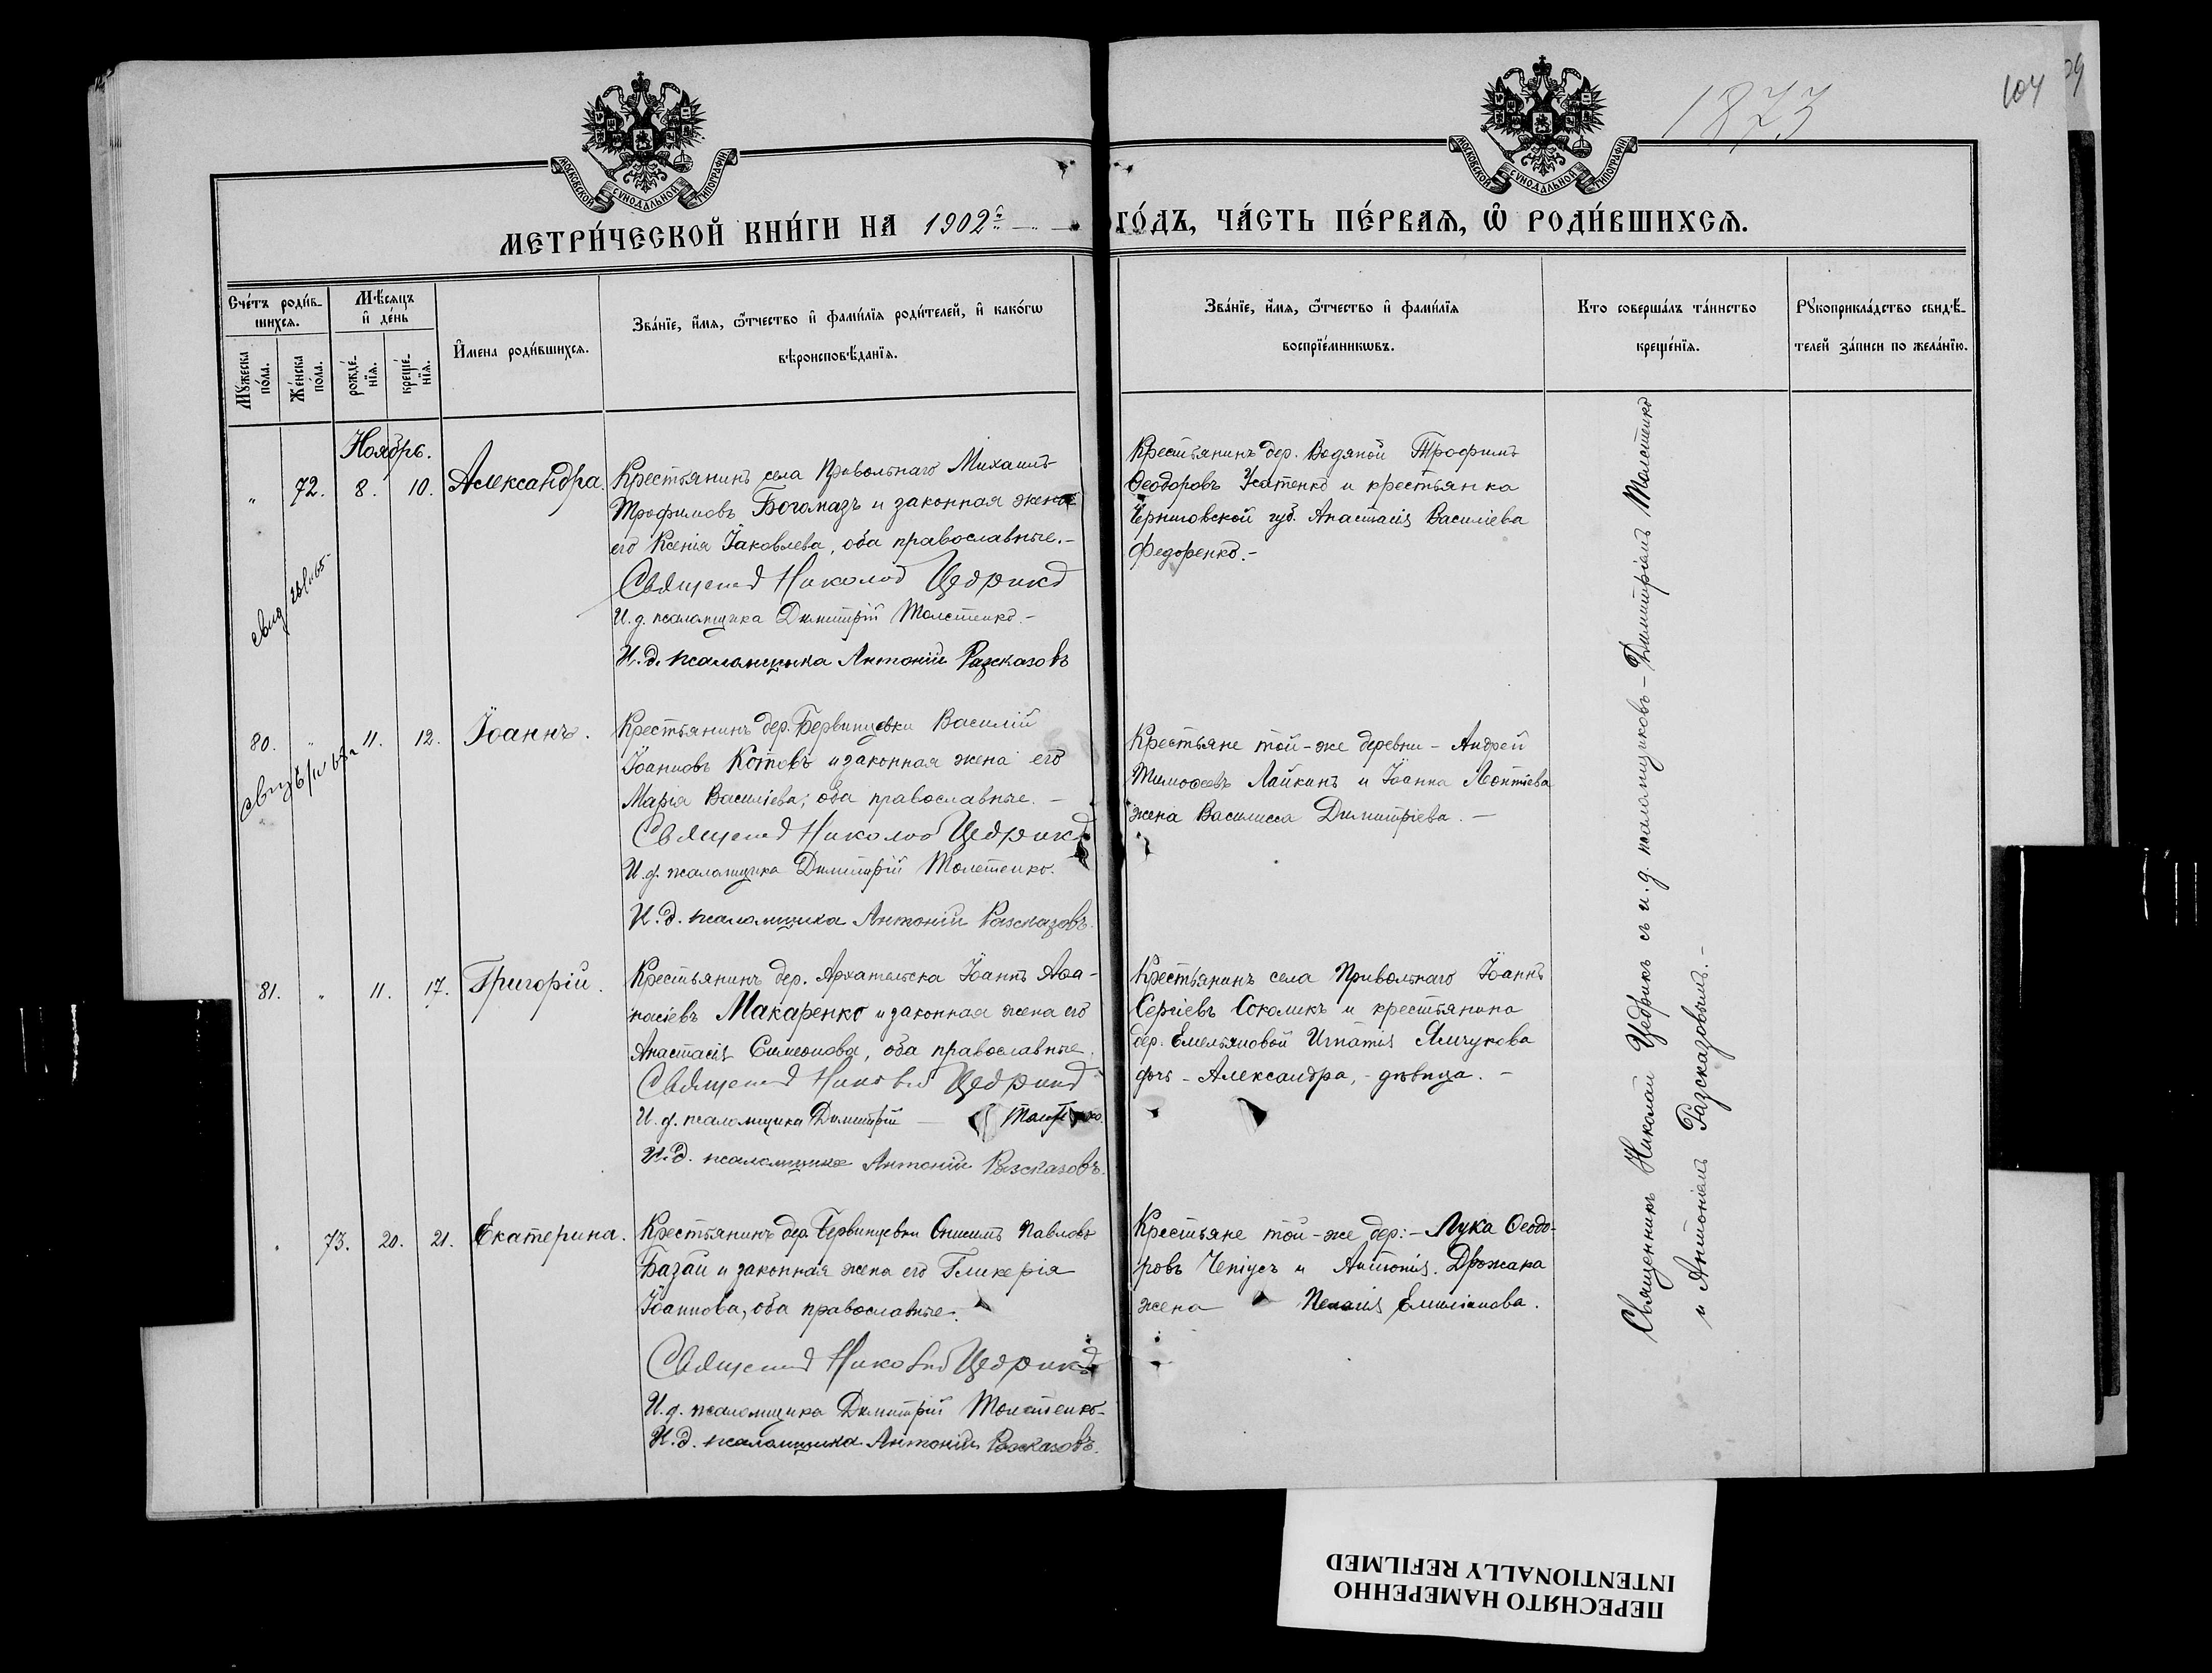 1873
104
МОСКОВСКОЙ СѴНОДАЛЬНОЙ ТИПОГРАФІИ
МОСКОВСКОЙ СѴНОДАЛЬНОЙ ТИПОГРАФІИ
МЕТРИ́ЧЕСКОЙ КНИ́ГИ НА 1902й ГО́ДЪ, ЧА́СТЬ ПЕ́РВАЯ, Ѡ҆ РОДИ́ВШИХСѦ.
Сче́тъ роди́в-
шихсѧ.
Мꙋжеска по́ла.
Же́нска по́ла.
Мѣ́сѧцъ и҆ де́нь
рожде́-
нїѧ.
креще́-
нїѧ.
И҆мена роди́вшихсѧ.
Зва́нїе, и҆́мѧ, ѻ҆́тчество и҆ фами́лїѧ роди́телей, и҆ како́гѡ
вѣроисповѣ́данїѧ.
Зва́нїе, и҆́мѧ, ѻ҆́тчество и҆ фами́лїѧ
воспрїе́мникѡвъ.
Кто соверша́лъ та́инство
креще́нїѧ.
Рꙋкоприкла́дство свидѣ́-
телей за́писи по жела́нїю.
Ноябрь.
„ 72. 8. 10. Александра.
Крестьянинъ села Привольнаго Михаилъ
Трофимовъ Богомазъ и законная жена
его Ксенія Іаковлева, оба православные.-
Священ Николай Цедрикъ
И. д. псаломщика Димитрій Толстенко.-
И. д. псаломщика Антоній Разсказовъ
Крестьянинъ дер. Водяной Трофимъ
Ѳеодоровъ Усатенко и крестьянка
Черниговской губ. Анастасія Василіева
Федоренко.-
80. „ 11. 12. Іоаннъ.
Крестьянинъ дер. Бервинцевки Василій
Іоанновъ Котовъ и законная жена его
Марія Василіева; оба православные. -
Священ Николай Цедрикъ
И. д. псаломщика Димитрій Толстенко.
И. д. псаломщика Антоній Разсказовъ.
Крестьяне той-же деревни - Андрей
Тимоѳеевъ Лайкинъ и Іоанна Леонтіева
жена Василисса Димитріева. -
81. „ 11. 17. Григорій.
Крестьянинъ дер. Архангельска Іоаннъ Аѳа-
насіевъ Макаренко и законная жена его
Анастасія Симеонова, оба православные.
Священ Николай Цедрикъ
И. д. псаломщика Димитрій - Толстенко.
И. д. псаломщика Антоній Разсказовъ.
Крестьянинъ села Привольнаго Іоаннъ
Сергіевъ Соколикъ и крестьянина
дер. Емельяновой Игнатія
дочь - Александра, - дѣвица. -
„ 73. 20. 21. Екатерина.
Крестьянинъ дер. Бервинцевки Онисимъ Павловъ
Базай и законная жена его Гликерія
Іоаннова, оба православные.
Священ Николай Цедрикъ
И. д. псаломщика Димитрій Толстенко-
И. д. псаломщика Антоній Разсказовъ.
Крестьяне той-же дер:- Лука Ѳеодо-
ровъ Чепіусъ и Антонія Дрожака
жена Пелагія Емиліанова.
Священникъ Николай Цедрикъ съ и. д. псаломщиковъ - Димитріемъ Толстенко
и Антоніемъ Разсказовымъ.-
ПЕРЕСНЯТО НАМЕРЕННО
INTENTIONALLY REFILMED